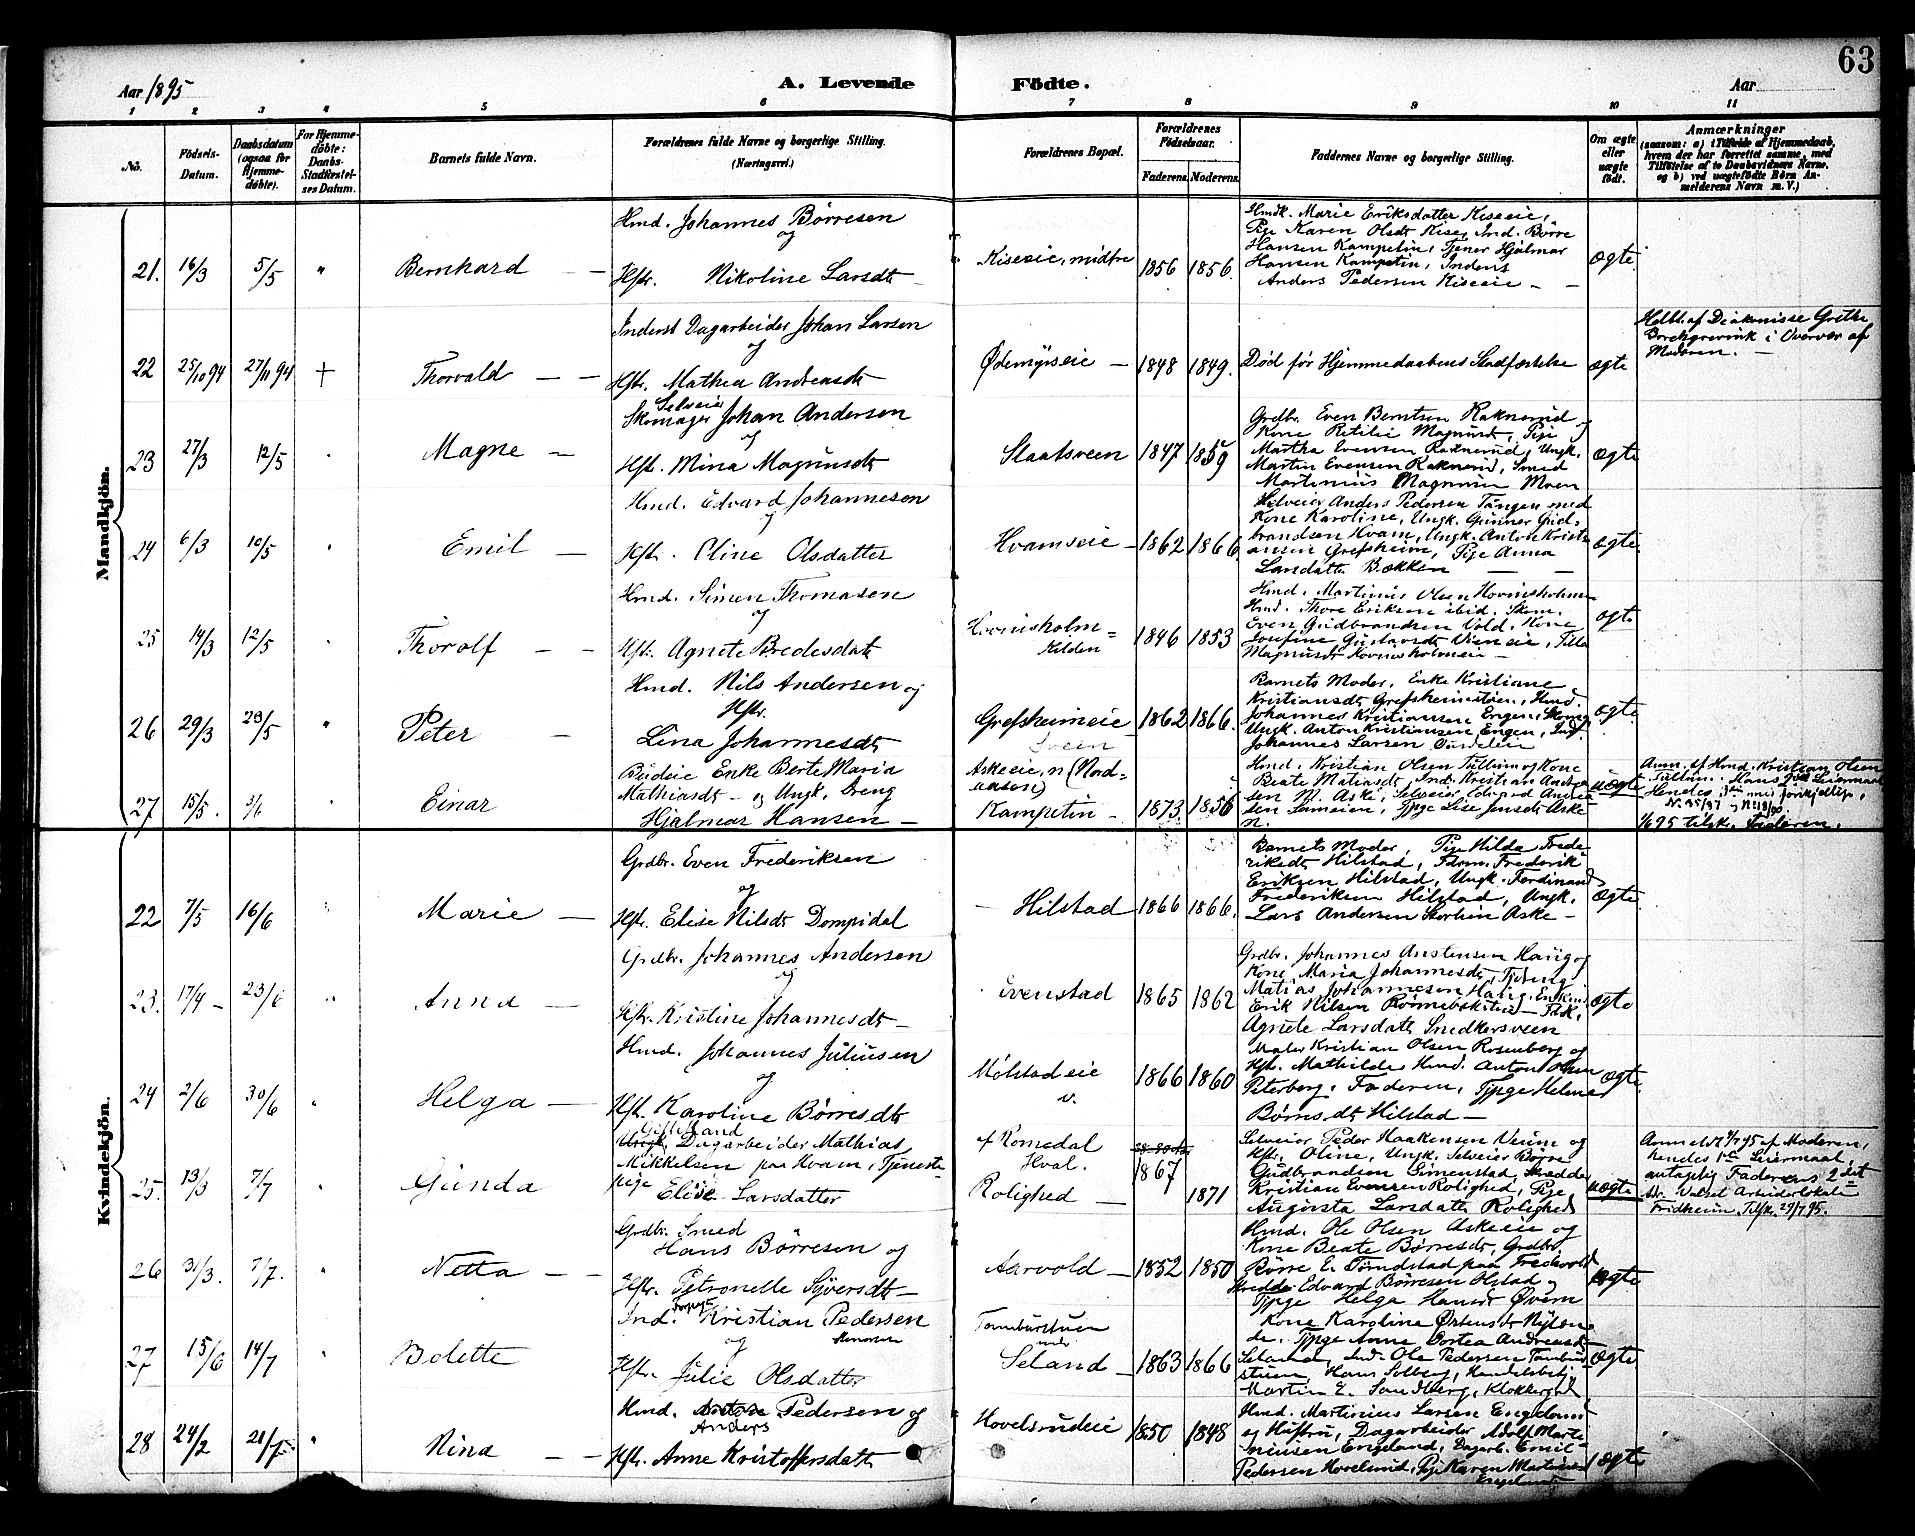 63
Aar 1895
A. Levende Födte.
Aar
1 2 3 4 5 6 7 8 9 10 11
No.
Födsels-
Datum.
Daabsdatum
(ogsaa for
Hjemme-
döbte).
For Hjemme-
döbte:
Daabs-
Stadfæstel-
ses Datum.
Barnets fulde Navn.
Forældrenes fulde Navne og borgerlige Stilling.
(Næringsvei.)
Forældrenes Bopæl.
Forældrenes
Födselsaar.
Faderens. Moderens.
Faddernes Navne og borgerlige Stilling.
Om ægte
eller
uægte
födt.
Anmærkninger
(saasom: a) i Tilfælde af Hjemmedaab,
hvem der har forrettet samme, med
Tilföielse af to Daabsvidners Navne,
og b) ved uægtefödte Börn An-
melderens Navn m. V.)
Mandkjön.
21. 16/3 5/5 " Bernhard
Hmd. Johannes Börresen
og
Hstr. Nikoline Larsdt
Kiseeie, midtre 1856 1856
Hmdk. Marie Eriksdatter Kiseeie,
Pige Karen Olsdt Kise, Ind. Börre
Hansen Kampetin, Tjener Hjalmar
Hansen Kampetin, Inderst
Anders Pedersen Kiseeie
Ægte
22 25/10 94 27/11 94 + Thorvald
Inderst Dagarbeider Johan Larsen
og
Hstr. Mathea Andreasdt
Ødemyrseie 1848 1849.
Död för Hjemmedaabens Stadfæstelse
ægte
Hdbt. af Diakonisse Grethe
Borchgrevink i Overvær af
Moderen.
23 27/3 12/5 Magne
Selveier
Skomager Johan Andersen
og
Hst. Mina Magnusdt
Staatsveen 1847 1859
Grdbr. Even Berntsen Raknerud
Kone Petilie Magnusdt, Pige
Martha Evensen Raknerud, Ungk.
Martin Evensen Raknerud, Smed
Martinius Magnussen Moen
Ægte
24 6/3 10/5 Emil
Hmd. Edvard Johannesen
og
Hstr. Oline Olsdatter
Hvamseie 1862 1866
Selveier Anders Pedersen Tangen med
Kone Karoline, Ungk. Gunner Gud-
brandsen Hvam, Ungk. Anton Kristi-
ansen Grefsheim, Pige Anna
Larsdatte Bækken
ægte.
25 14/3 12/5 Thorolf
Hmd. Simen Thomasen
og
Hst. Agnete Bredesdatt
Hovinsholm-
kilden 1846 1853
Hmd. Martinius Olsen Hovinsholmen
Hmd. Thore Eriksen ibid.
Even Gudbrandsen Vold, Kone
Josefine Gustavsdt Vieneie, Tilla
Magnusdt Hovinsholmeie
ægte
26 29/3 23/5 " Peter
Hmd. Nils Andersen og
Hstr.
Lina Johannesdt
Grefsheimeie
Sveen 1862 1866.
Barnets Moder, Enke Kristiane
Kristiansdt Grefsheimstuen, Hmd.
Johannes Kristiansen Engen,
Ungk. Anton Kristiansen Engen, Ind.
Johannes Larsen
ægte
27 15/5. 3/6 Einar
Budeie Enke Berte Maria
Mathiasdt og Ungk, Dreng
Hjalmar Hansen
Askeeie, n (Nord-
aasen)
Kampetin 1873 1856
Hmd. Kristian Olsen Tutbim og Kone
Beate Matiasdt, Ind. Kristian Andrea
sen N. Aske, Selveier Edvard Andrea
sen Lameien, Tjpge Lise Jensdt Aske
n.
uægte
Anm. af Hmd. Kristian Olsen
Hans 1ste Leiermaal
Hendes
1/6 95 tilsk. Faderen.
Kvindekjön.
22 7/5 16/6 " Marie
Grdbr. Even Frederiksen
og
Hstr. Elise Nilsdt Dompidal
Hilstad 1866 1866.
Barnets Moder, Pige Hilda Frede-
rikedt Hilstad, Frederik
Eriksen Hilstad, Ungk. Ferdinand
Frederiksen Hilstad, Ungk.
Lars Andersen Aske
Ægte
23. 17/4 23/6 " Anna
Grdbr. Johannes Andersen
og
Hstr. Kristine Johannesdt
Evenstad 1865 1862
Grdbr. Johannes Anstensen Haug og
Kone Maria Johannesdt, Tjdreng
Matias Johannesen Haug, Enkem.
Erik Nilsen
Agnete Larsdatt Snedkersveen
ægte
24 2/6 30/6 " Helga
Hmd. Johannes Juliusen
og
Hst. Karoline Börresdt
Mölstadeie
v. 1866 1860
Maler Kristian Olsen Rosenberg og
Hst. Mathilde, Hmd. Anton Olsen
Peterberg, Faderen, Tjpge Helene
Börresdt Hilstad
ægte
25. 13/3 7/7 " Gunda
Giftemand
Ungk. Dagarbeider Mathias
Mikkelsen paa Hvam, Tjeneste-
pige Elise Larsdatter
af Romedal
Hval. 1867
Rolighed 1871
Selveier Peder Haakensen Veum og
Hstr. Oline, Ungk. Selveier Börre
Gudbrandsen Simenstad, Skrædder
Kristian Evensen Rolighed, Pige
Augusta Larsdatte Rolighed
uægte
Anmeldt 4/7 95 af Moderen,
hendes 1ste Leiermaal,
antagelig Faderens 2det
Adr. Valset Arbeiderlokale
Fridheim Tilsk. 29/7 95.
26 31/3. 7/7. " Netta
Grdbr. Smed
Hans Börresen og
Hstr. Petronelle Syversdt
Aarvold 1852 1850
Hmd. Ole Olsen Askeeie og
Kone Beate Börresdt, Grdbr.
Börre E. Törudstad paa Fredsvold
Skrædder Edvard Börresen Olstad og
Tjpge Helga Hansdt Övern
ægte
27 15/6 14/7 Bolette
Ind. Forpagt. Kristian Pedersen
og
Hstr. Julie Olsdatter
Tambursuen
under
Seland 1863 1866
Kone Karoline
de, Tjpge Anne Dortea Andreasdt
Seland, Ind. Ole Pedersen Tambur-
stuen, Hans Solberg, Handelsbetj.
Martin E. Sandberg, Klokkergrd
Ægte
28 24/2 21/7 " Nina
Hmd. Anders Pedersen og
Hstr. Anne Kristoffersdatt
Hovelsrudeie 1850 1848
Hmd. Martinius Larsen Engelund
og Hustru, Dagarbeider Adolf Marti-
niusen Engeland, Dagarb. Emil
Pedersen Hovelsrud, Pige Karen Martinsen
Engelund
ægte